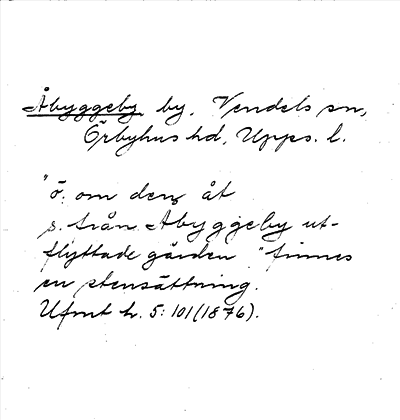 Åbyggeby by, Vendels sn,
Örbyhus hd, Upps. l.
"ö. om den åt
s. från Åbyggeby ut-
flyttade gården" finnes
en stensättning.
Ufmt h. 5:101 (1876).